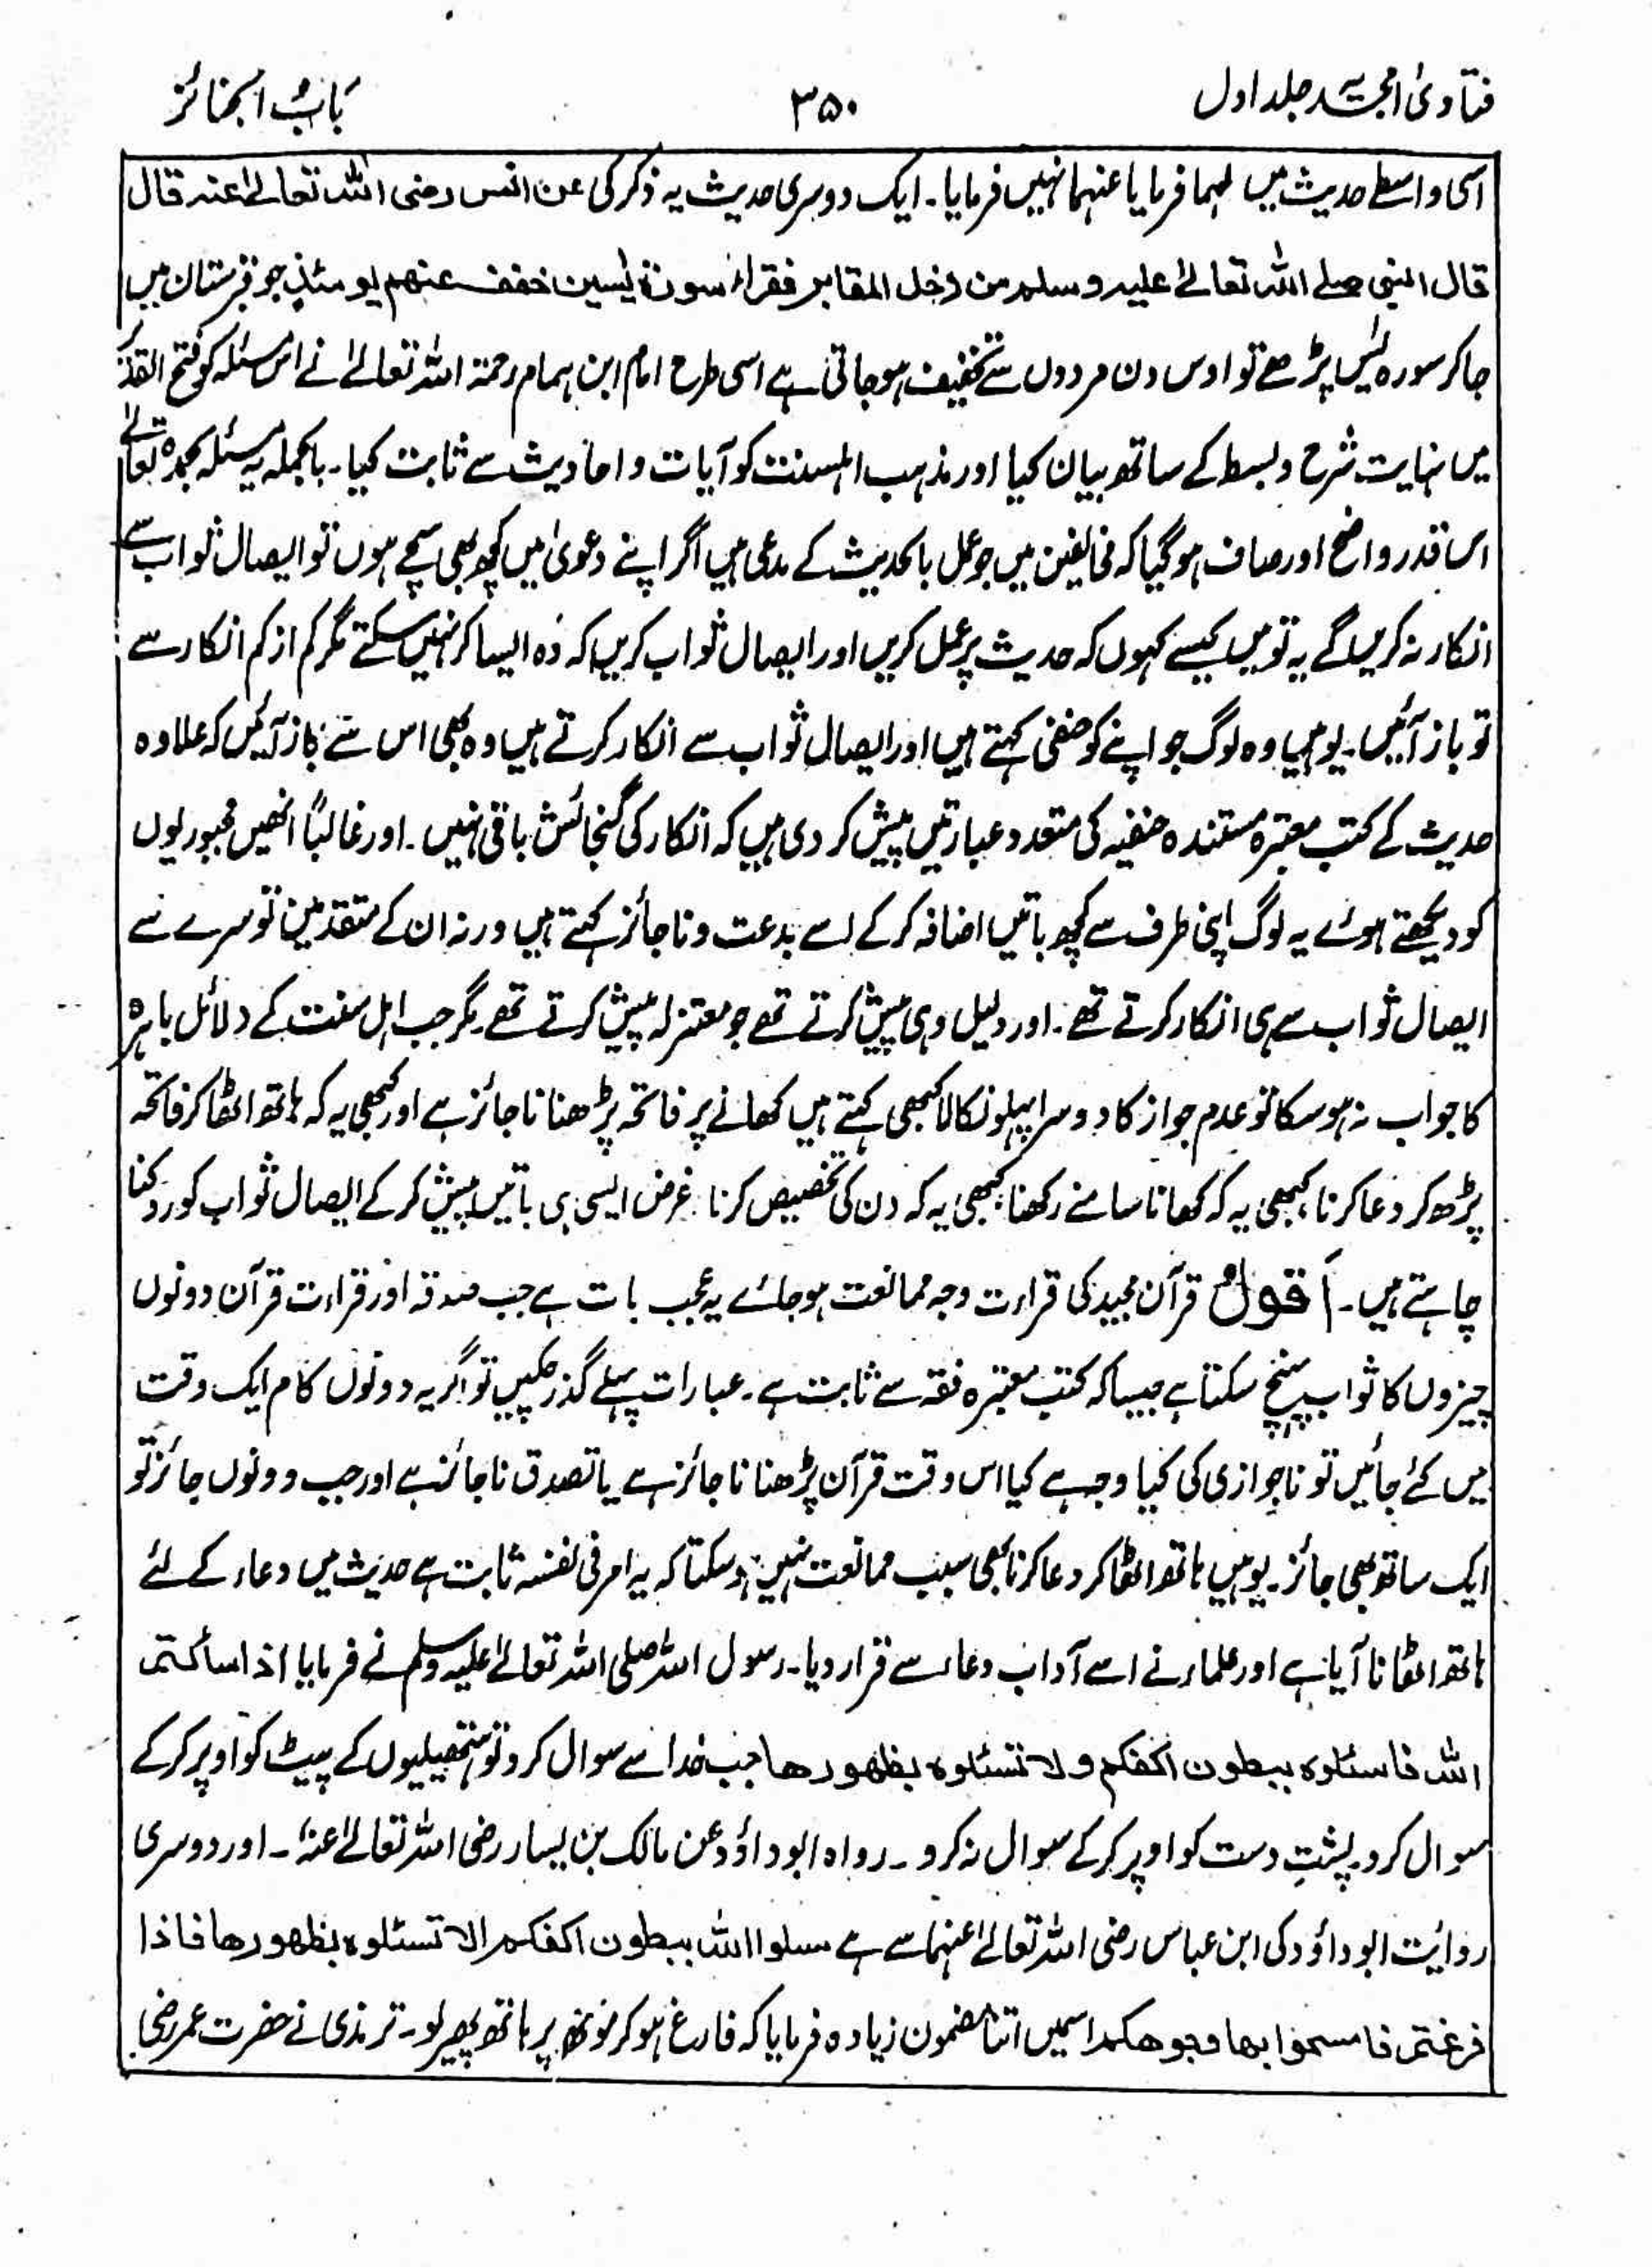 فتاویٰ امجدیہ جلد اول
۳۵۰
باب الجنائز
اسی واسطے حدیث میں لہما فرمایا عنہما نہیں فرمایا۔ ایک دوسری حدیث یہ ذکر کی عن انس رضی اللہ تعالےٰ عنہ قال
قال النبی صلے اللہ تعالےٰ علیہ وسلم من دخل المقابر فقراء سورۃ یٰسین خفف عنھم یومئذٍ جو قبرستان میں
جاکر سورہ یٰس پڑھے تو اوس دن مردوں سے تخفیف ہوجاتی ہے اسی طرح امام ابن ہمام رحمۃ اللہ تعالےٰ نے اس مسئلہ کو فتح القدیر
میں نہایت شرح وبسط کے ساتھ بیان کیا اور مذہب اہلسنت کو آیات و احادیث سے ثابت کیا۔ بالجملہ یہ مسئلہ بحمدہ تعالےٰ
اس قدر واضح اور صاف ہوگیا کہ مخالفین میں جو عمل بالحدیث کے مدعی ہیں اگر اپنے دعویٰ میں کچھ بھی سچے ہوں تو ایصال ثواب سے
انکار نہ کریں گے یہ تو میں کیسے کہوں کہ حدیث پر عمل کریں اور ایصال ثواب کریں کہ وہ ایسا کر نہیں سکتے مگر کم از کم انکار سے
تو باز آئیں۔ یوہیں وہ لوگ جو اپنے کو حنفی کہتے ہیں اور ایصال ثواب سے انکار کرتے ہیں وہ بھی اس سے باز آئیں کہ علاوہ
حدیث کے کتب معتبرہ مستندہ حنفیہ کی متعدد عبارتیں پیش کر دی ہیں کہ انکار کی گنجائش باقی نہیں۔ اور غالباً انھیں مجبوریوں
کو دیکھتے ہوئے یہ لوگ اپنی طرف سے کچھ باتیں اضافہ کرکے اسے بدعت و ناجائز کہتے ہیں ورنہ ان کے متقدمین تو سرے سے
ایصال ثواب سے ہی انکار کرتے تھے۔ اور دلیل وہی پیش کرتے تھے جو معتزلہ پیش کرتے تھے۔ مگر جب اہل سنت کے دلائل باہرہ
کا جواب نہ ہوسکا تو عدم جواز کا دوسرا پہلو نکالا کبھی کہتے ہیں کھانے پر فاتحہ پڑھنا ناجائز ہے اور کبھی یہ کہ ہاتھ اٹھا کر فاتحہ
پڑھ کر دعا کرنا، کبھی یہ کہ کھانا سامنے رکھنا، کبھی یہ کہ دن کی تخصیص کرنا غرض ایسی ہی باتیں پیش کرکے ایصال ثواب کو روکنا
چاہتے ہیں۔ اَقُولُ قرآن مجید کی قراءت وجہ ممانعت ہوجائے یہ عجب بات ہے جب صدقہ اور قراءت قرآن دونوں
چیزوں کا ثواب پہنچ سکتا ہے جیسا کہ کتب معتبرہ فقہ سے ثابت ہے۔ عبارات پہلے گذر چکیں تو اگر یہ دونوں کام ایک وقت
میں کئے جائیں تو ناجوازی کی کیا وجہ ہے کیا اس وقت قرآن پڑھنا ناجائز ہے یا تصدق ناجائز ہے اور جب دونوں جائز تو
ایک ساتھ بھی جائز۔ یوہیں ہاتھ اٹھا کر دعا کرنا بھی سبب ممانعت نہیں ہوسکتا کہ یہ امر فی نفسہ ثابت ہے حدیث میں دعاء کے لئے
ہاتھ اٹھانا آیا ہے اور علماء نے اسے آداب دعاء سے قرار دیا۔ رسول اللہ صلی اللہ تعالےٰ علیہ وسلم نے فرمایا اذا سألتم
اللہ فاسئلوہ ببطون اکفکم ولا تسئلوہ بظھورھا جب خدا سے سوال کرو تو ہتھیلیوں کے پیٹ کو اوپر کرکے
سوال کرو۔ پشتِ دست کو اوپر کرکے سوال نہ کرو۔ رواہ ابوداؤد عن مالک بن یسار رضی اللہ تعالےٰ عنہ۔ اور دوسری
روایت ابوداؤد کی ابن عباس رضی اللہ تعالےٰ عنہما سے ہے سلوا اللہ ببطون اکفکم الا تسئلوہ بظھورھا فاذا
فرغتم فامسحوا بھا وجوھکم اسمیں اتنا مضمون زیادہ فرمایا کہ فارغ ہوکر مونھ پر ہاتھ پھیر لو۔ ترمذی نے حضرت عمر رضی